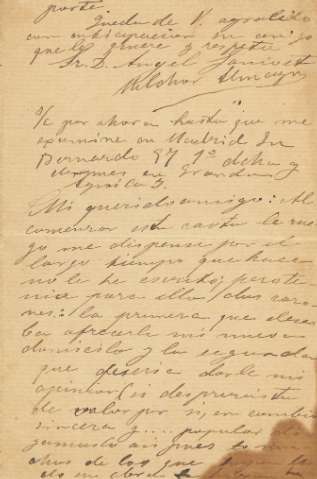 parte.
Queda de V. agradecido
con anticipacion su amigo
que le quiere y respeta
Sr. D. Angel Ganivet
Melchor Almagro
S/c por ahora hasta que me
examine en Madrid Sn
Bernardo 57 1º dcha y
despues en Granada
Mi querido amigo: Al
comenzar esta carta le rue
go me dispense por el
largo tiempo que hace
no le he escrito; pero te
nia para ello dos razo
nes: la primera que desea
ba ofrecerle mi nuevo
domicilio y la segunda
que deseria darle mi
opinion (si desprovista
de valor por si, en cambio
sincera y.... popular
chos de los que